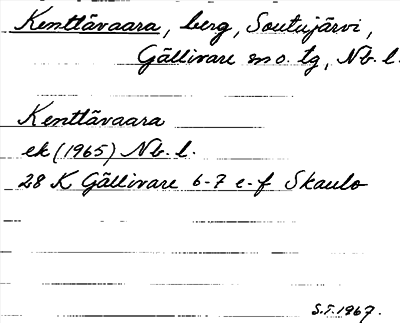 Kenttävaara, berg, Soutujärvi,
Gällivare sn o. tg, Nb. l.
Kenttävaara
ek (1965) Nb. l.
28 K Gällivare 6-7 e-f Skaulo
S.T. 1967.